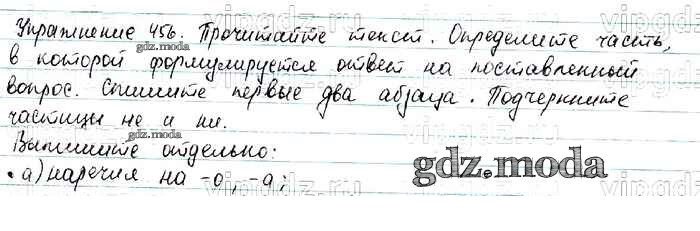 Упражнение 456. Прочитайте текст. Определите часть,
в которой формулируется ответ на поставленный
вопрос. Спишите первые два абзаца. Подчеркните
частицы не и ни.
Выпишите отдельно:
• а) наречия на -о, -а;
gdz.moda
gdz.moda
vipgdz.ru